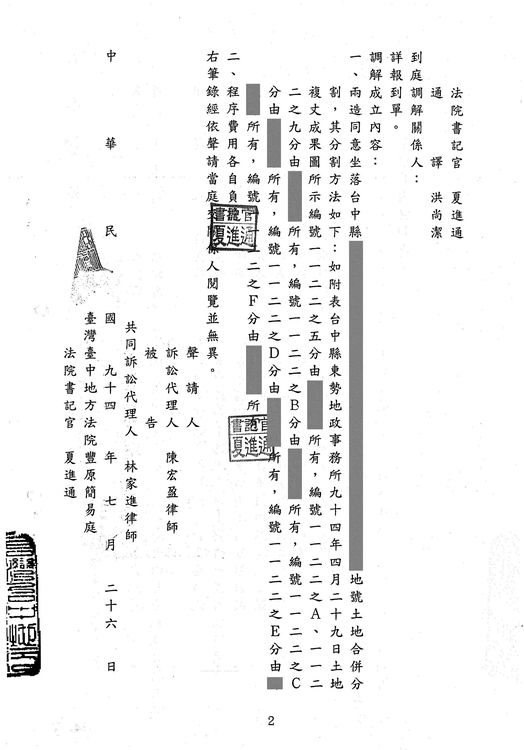 法院書記官　夏進通
通　　譯　洪尚潔
到庭調解關係人：
詳報到單。
調解成立內容：
一、兩造同意坐落台中縣地號土地合併分
割，其分割方法如下：如附表台中縣東勢地政事務所九十四年四月二十九日土地
複丈成果圖所示編號一一二二之五分由所有，編號一一二二之A、一一二
二之九分由所有，編號一一二二之B分由所有，編號一一二二之C
分由所有，編號一一二二之D分由所有，編號一一二二之E分由
所有，編號一一二二之F分由所
二、程序費用各自負
右筆錄經依聲請當庭交關係人閱覽並無異。
聲請人
訴訟代理人　陳宏盈律師
被　　告
共同訴訟代理人　林家進律師
中　華　民　國　九十四　年　七　月　二十六　日
臺灣臺中地方法院豐原簡易庭
法院書記官　夏進通
書記官
夏進通
書記官
夏進通
2